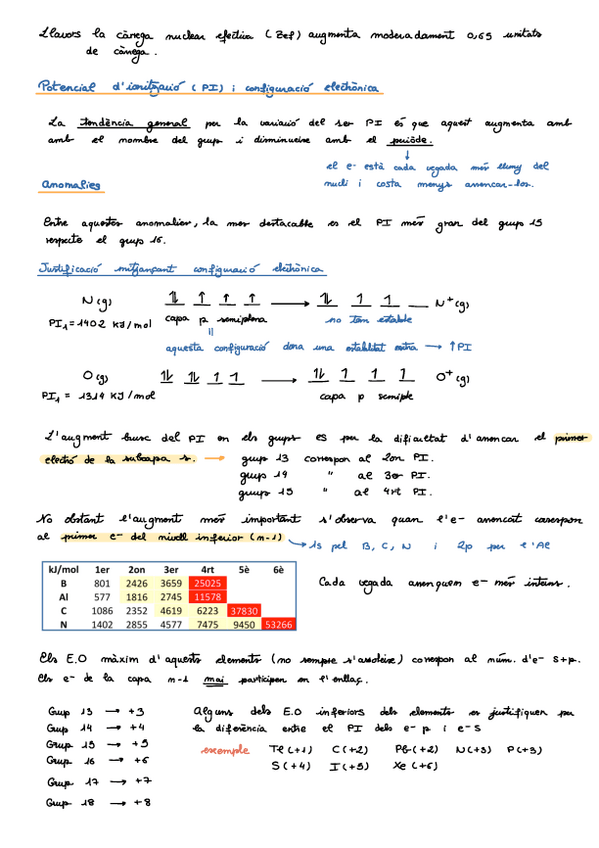 Llavors la càrrega nuclear efectiva (Zef) augmenta moderadament 0,65 unitats
de càrrega.
Potencial d'ionització (PI) i configuració electrònica
La tendència general per la variació del 1er PI és que aquest augmenta amb
amb el nombre del grup i disminueix amb el període.
↓
el e- està cada vegada més lluny del
nucli i costa menys arrencar-los.
Anomalies
Entre aquestes anomalies, la més destacable es el PI més gran del grup 15
respecte el grup 16.
Justificació mitjançant configuració electrònica
N (g) ⥮ ↑ ↑ ↑ → ⥮ 1 1 _ N+ (g)
PI1 = 1402 KJ/mol capa p semiplena no tan estable
||
aquesta configuració dona una estabilitat extra → ↑PI
O (g) ⥮ ⥮ 1 1 → ⥮ 1 1 1 O+ (g)
PI1 = 1314 KJ/mol capa p semiple
L'augment brusc del PI en els grups es per la dificultat d'arrencar el primer
electró de la subcapa s. → grup 13 correspon al 2on PI.
grup 14 " al 3er PI.
grup 15 " al 4rt PI.
No obstant l'augment més important s'observa quan l'e- arrencat correspon
al primer e- del nivell inferior (n-1) → 1s pel B, C, N i 2p per l'Al
kJ/mol 1er 2on 3er 4rt 5è 6è
B 801 2426 3659 25025
Al 577 1816 2745 11578
C 1086 2352 4619 6223 37830
N 1402 2855 4577 7475 9450 53266
Cada vegada arrenquem e- més interns.
Els E.O màxim d'aquests elements (no sempre s'assoleix) correspon al núm. d'e- s+p.
Els e- de la capa n-1 mai participen en l'enllaç.
Grup 13 → +3
Grup 14 → +4
Grup 15 → +5
Grup 16 → +6
Grup 17 → +7
Grup 18 → +8
Alguns dels E.O inferiors dels elements es justifiquen per
la diferència entre el PI dels e- p i e- s
exemple Tl (+1) C (+2) Pb (+2) N (+3) P (+3)
S (+4) I (+5) Xe (+6)